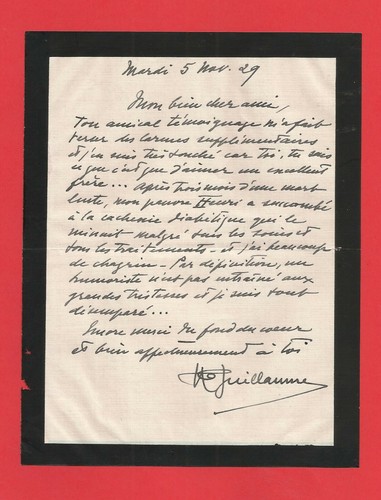 Mardi 5 Nov. 29
Mon bien cher ami,
Ton amical témoignage m'a fait
verser des larmes supplémentaires
et j'en suis très touché car toi, tu sais
ce que c'est que d'aimer un excellent
frère... Après trois mois d'une mort
lente, mon pauvre Henri a succombé
à la cachexie diabétique qui le
minait malgré tous les soins et
tous les traitements - et j'ai beaucoup
de chagrin - Par définition, un
humoriste n'est pas entraîné aux
grandes tristesses et je suis tout
désemparé...
Encore merci du fond du coeur
et bien affectueusement à toi
Guillaume